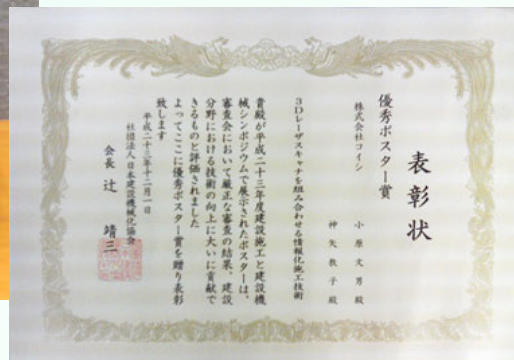 表彰状
優秀ポスター賞
株式会社コイシ
小原文男殿
神矢牧子殿
3Dレーザスキャナを組み合わせる情報化施工技術
貴殿が平成二十三年度建設施工と建設機
械シンポジウムで展示されたポスターは、
審査会において厳正な審査の結果、建設
分野における技術の向上に大いに貢献で
きるものと評価されました
よってここに優秀ポスター賞を贈り表彰
致します
平成二十三年十二月一日
社団法人日本建設機械化協会
会長 辻 靖三